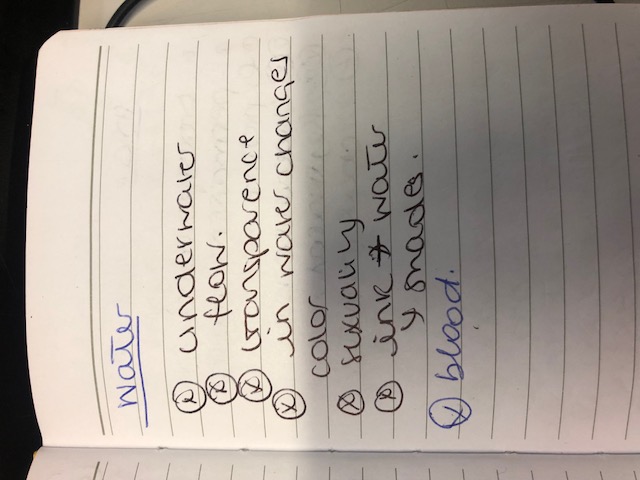 Water
ⓧ underwater
ⓧ flow.
ⓧ transparence
ⓧ in water changes
color
ⓧ sexuality
ⓧ ink + water
↳ shades.
ⓧ blood.